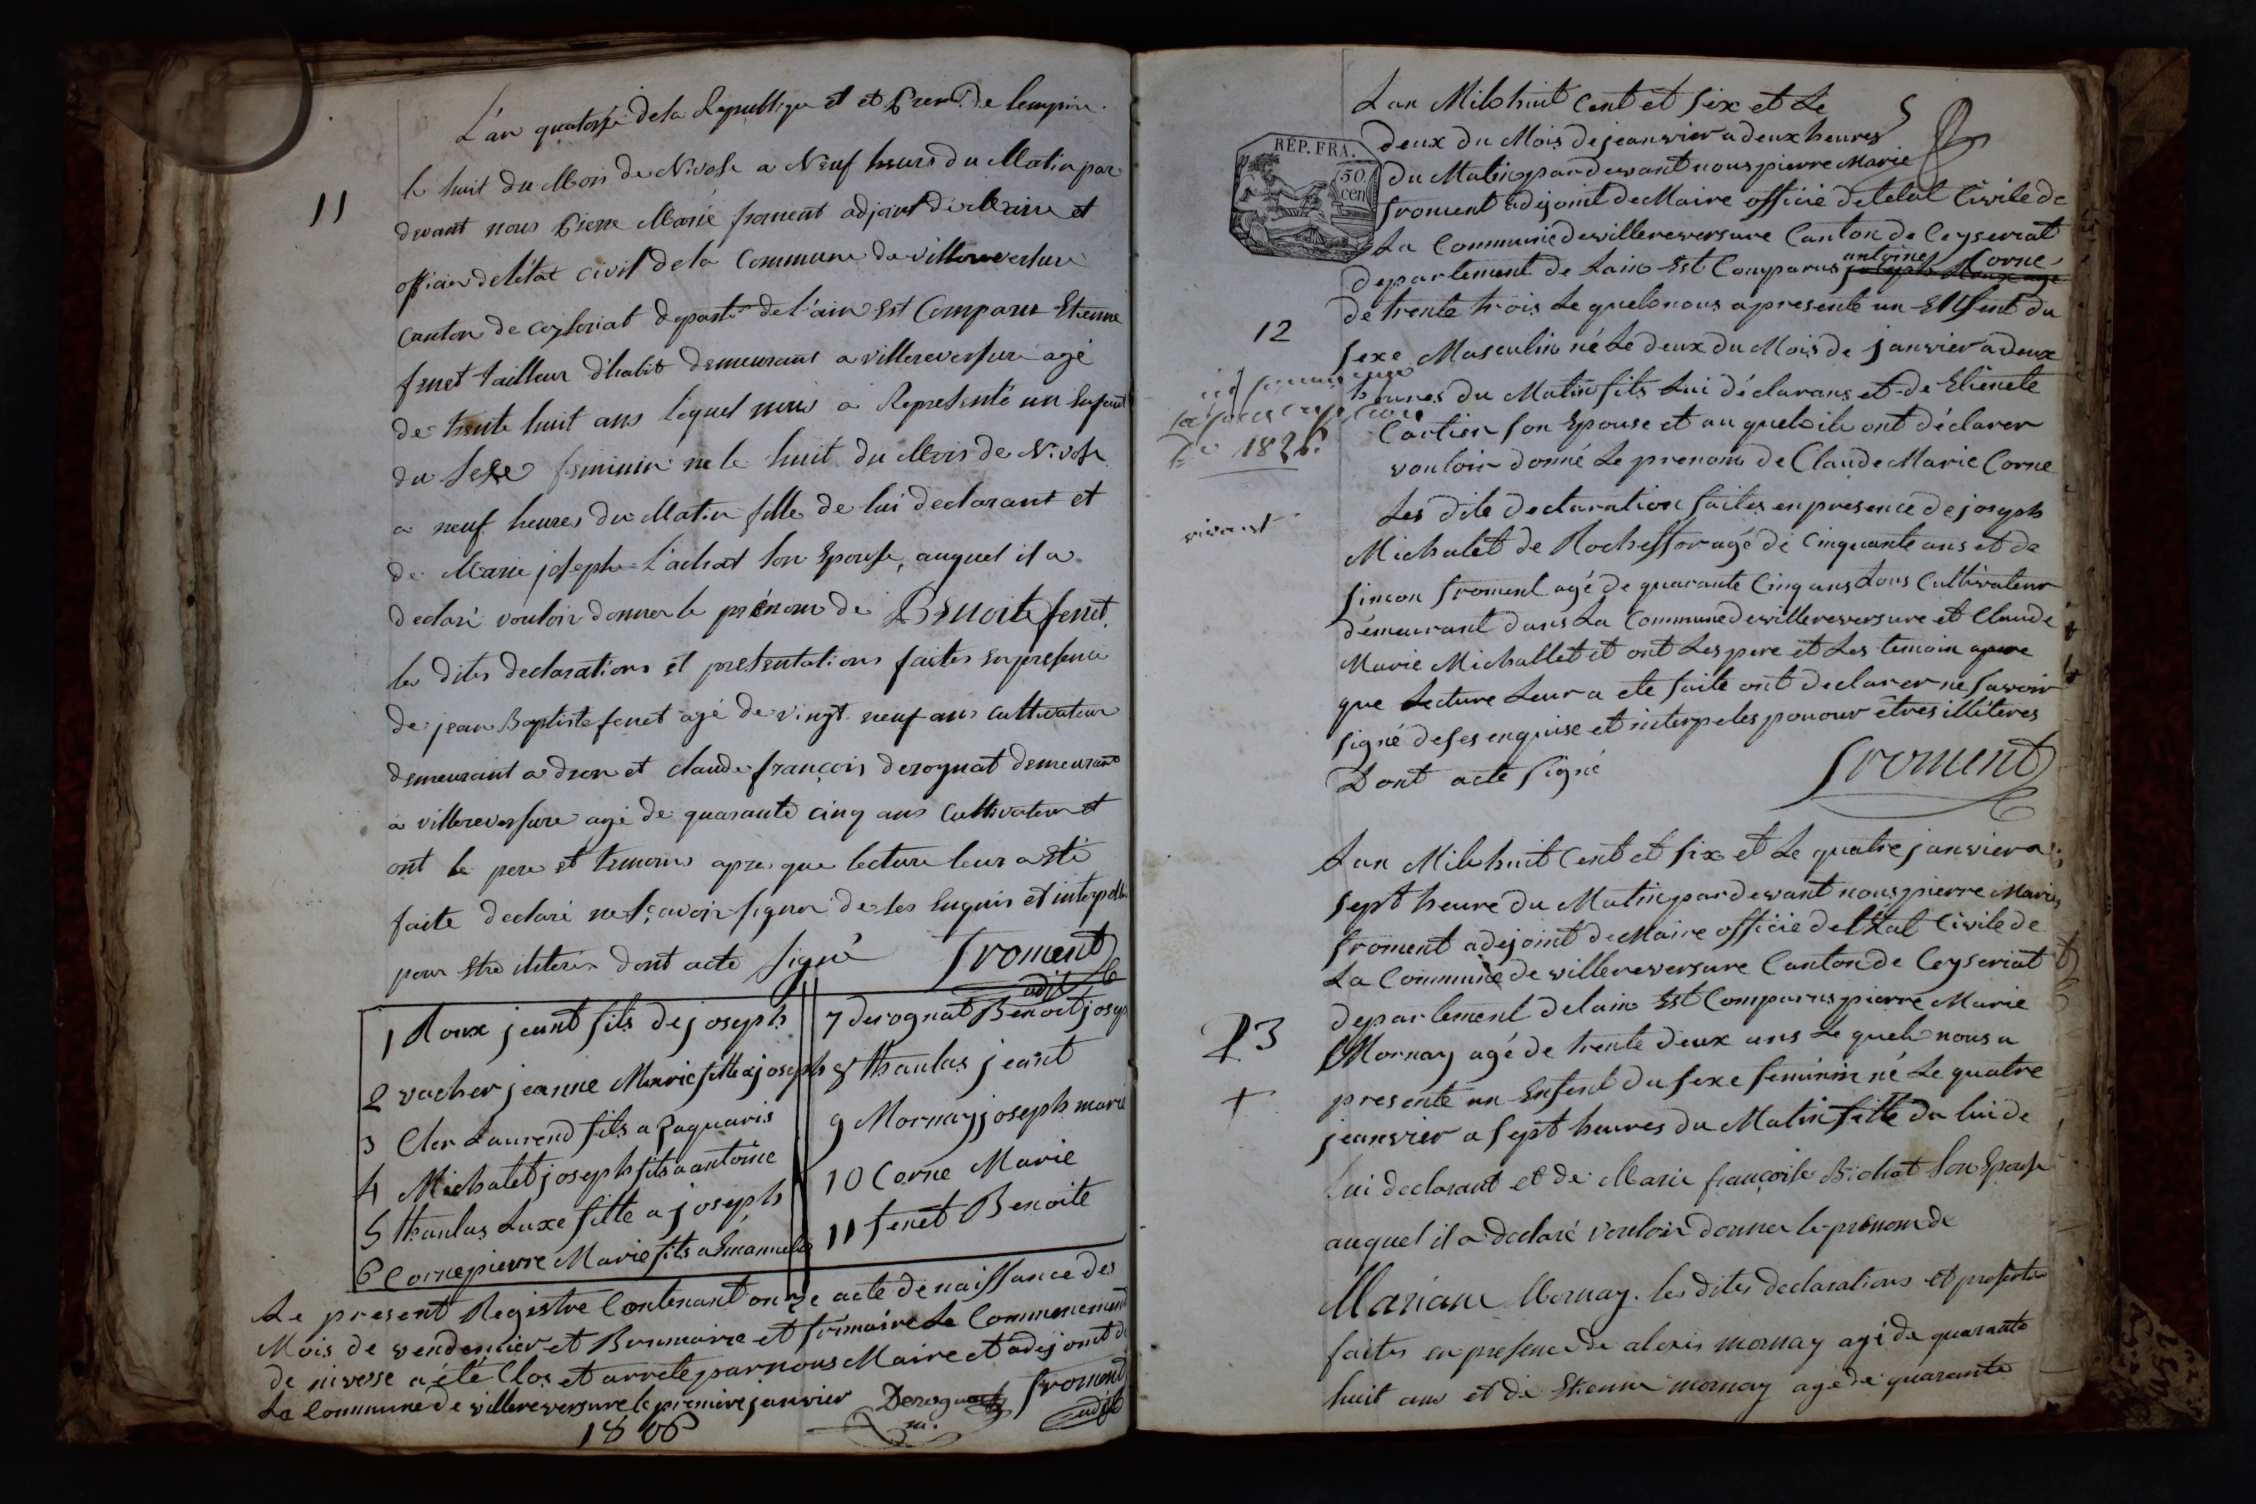 L'an quatorze de la Republique et et Prem.r de lempire
11
le huit du Mois de Nivose a Neuf heurs du Matin par
devant nous Pierre Marie froment adjoint de Maire et
officier de l'état civil de la Commune de villereversure
Canton de ceyseriat depart.t de l'ain Est Comparu Etienne
fenet tailleur d'habit demeurant a villereversure agé
de trente huit ans lequel nous a Représenté un Enfant
du Sexe feminin ne le huit du Mois de Nivose
a neuf heures du Matin fille de lui declarant et
de Marie joseph Lachat Son Epouse, auquel il a
declaré vouloir donner le prénom de Benoite fenet.
les dites declarations et presentations faites en presence
de jean Baptiste fenet agé de vingt neuf ans cultivateur
demeurant a drom et claude françois derognat demeurant
a villereversure agé de quarante cinq ans cultivateur et
ont le pere et temoins apres que lecture leur a Eté
faite declaré ne sçavoir signer de les Enquis et interpellé
pour Etre iliteres dont acte Signé froment
adjt
1 Roux jeant fils de joseph
2 vacher jeanne Marie fille a joseph
3 Cler Laurend fils a Zaquaris
4 Michalet joseph fils a antoine
5 thanlas Luxe fille a joseph
6 Corne pierre Marie fils a Emanuel
7 derognat Benoit josep
8 thanlas jeant
9 Mornay joseph marie
10 Corne Marie
11 fenet Benoite
Le present Registre Contenant onze acte de naissance des
Mois de vendemier et Brumaire et frimaire Le Commencement
de nivosse a été Clos et arrete par nous Maire et adejoint de
La Commune de villereversure le premiere janvier Derognat froment
1806 m. adjt
Lan Mil huit Cent et six et Le
deux du Mois de jeanvier a deux heures
REP. FRA.
50 cen
du Matin par devant nous pierre Marie
froment adejoint de Maire officié de letat Civile de
La Commune de villereversure Canton de Ceyseriat
antoine Corne
departement de Lain Est Comparus joseph Roux age
de trente trois Le quel nous a presente un Enfent du
12
sexe Masculin né Le deux du Mois de janvier a deux
heures du Matin fils Lui déclarans et de Etienete
ici commence
la
de 1806.
Cartier son Epouse et au quel ils ont déclarer
vouloir donné Le prenom de Claude Marie Corne
Les dite declaration faites en presence de joseph
vivant
Michalet de Rocheffor agé de Cinquante ans et de
simon froment agé de quarante Cinq ans tous Cultivateur
demeurant dans La Commune de villereversure et Claude
Marie Michallet et ont Les pere et Les temoin apere
que Lecture Leur a ete faite ont declarer ne savoir
signé de ses enquise et interpeles pouour êtres illiteres
Dont acte signé froment
Lan Mil huit Cent et six et Le quatre janvier a
sept heure du Matin par devant nous pierre Marie
froment adejoint de Maire officie de létat Civile de
La Commune de villereversure Canton de Ceyseriat
departement de lain Est Comparus pierre Marie
13
Mornay agé de trente deux ans Le quel nous a
presente un Enfent du sexe feminin né Le quatre
+
jeanvier a sept heures du Matin fille du lui de
lui declarant et de Marie françoise Bichat Son Epouse
auquel il a declaré vouloir donner le prénom de
Mariane Mornay. les dites declarations et presentn
faites en presence de alexis mornay agé de quarante
huit ans et de Etienne mornay agé de quarante